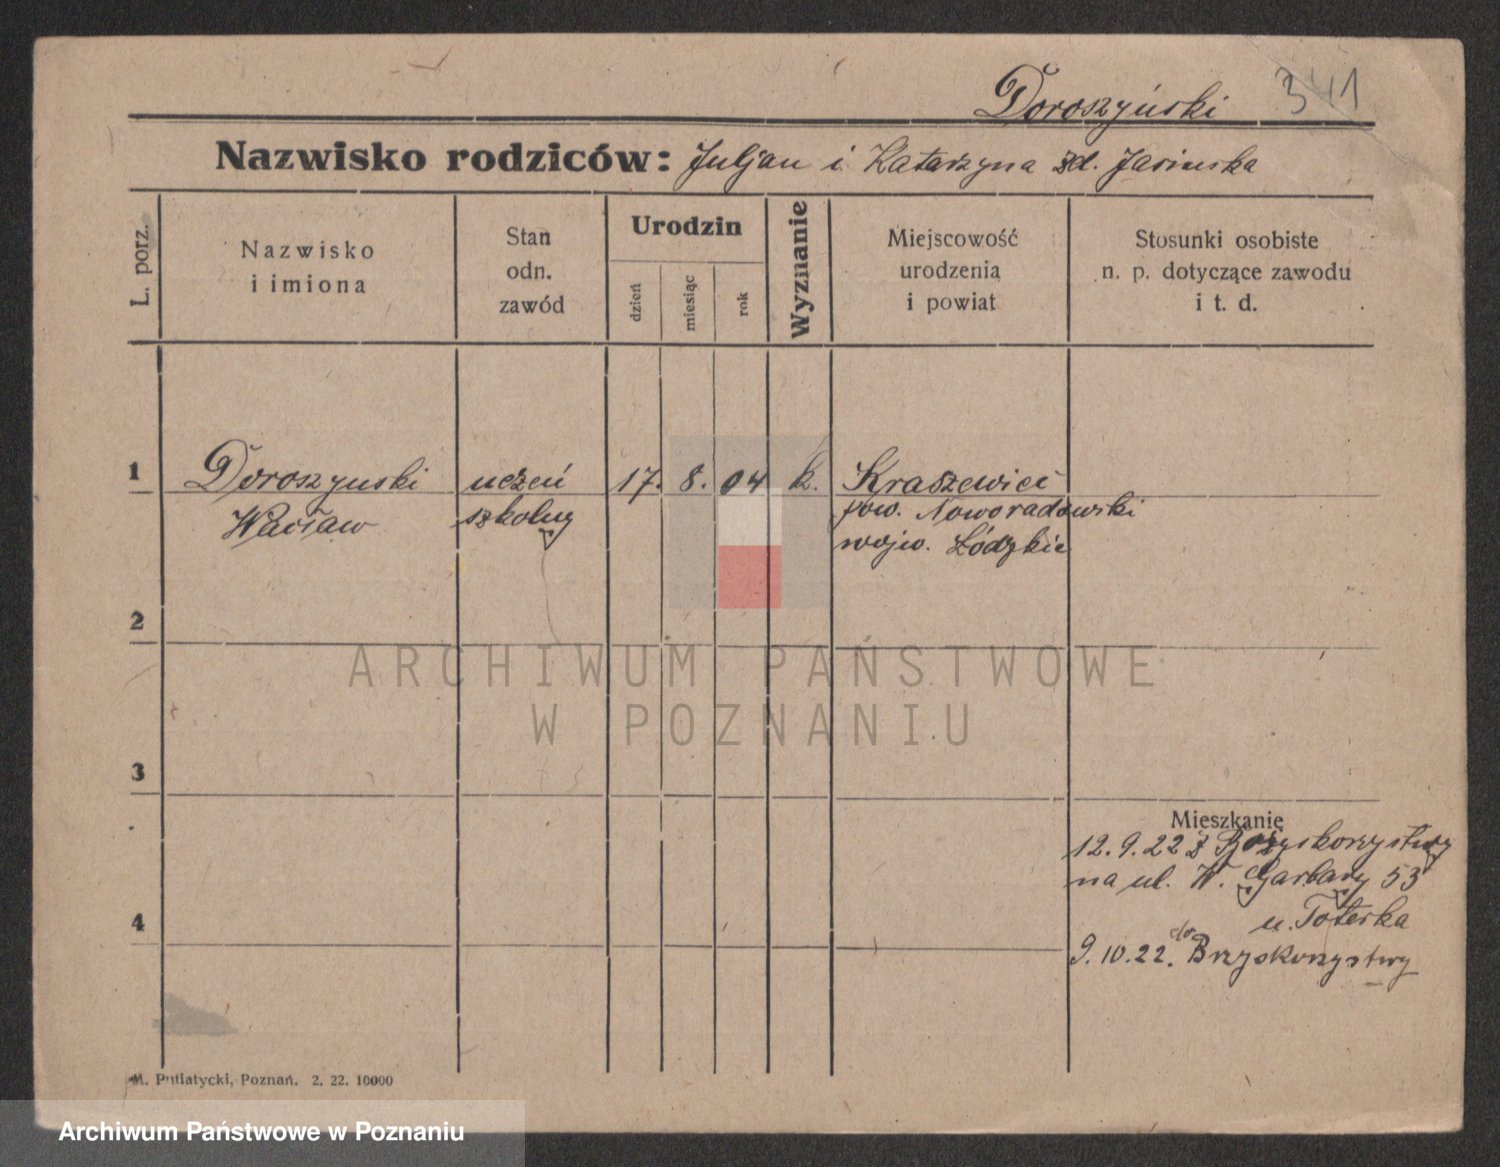 Doroszyński 341
Nazwisko rodziców: Juljan i Katarzyna zd. Jasińska
L. porz.
Nazwisko
i imiona
Stan
odn.
zawód
Urodzin
dzień
miesiąc
rok
Wyznanie
Miejscowość
urodzenia
i powiat
Stosunki osobiste
n. p. dotyczące zawodu
i t. d.
1 Doroszynski uczeń 17. 8. 04 k. Kraszewice
Wacław szkolny pow. Noworadowski
wojw. Łódzkie
2
ARCHIWUM PAŃSTWOWE
W POZNANIU
3
Mieszkanie
12.9.22 z Brzyskorzystwy
na ul. W. Garbary 53
4
u. Toterka
9.10.22. do Brzyskorzystwy
M. Putiatycki, Poznań. 2. 22. 10000
Archiwum Państwowe w Poznaniu